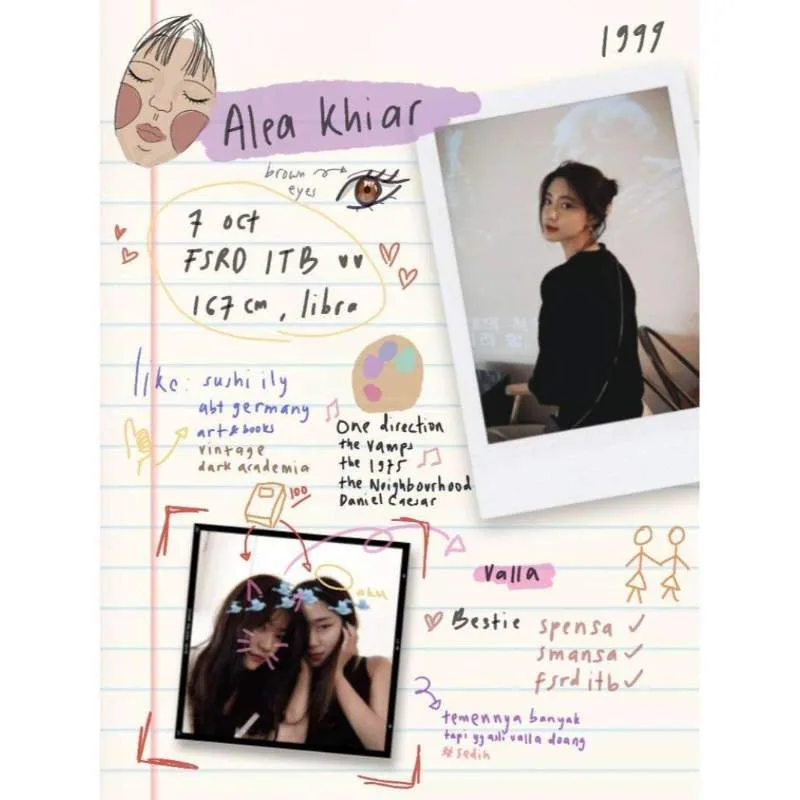 1999
Alea Khiar
brown
eyes
7 oct
FSRD ITB
167 cm, libra
like: sushi ily
abt germany
art & books
vintage
dark academia
One direction
the vamps
the 1975
the Neighbourhood
Daniel Caesar
100
aku
valla
Bestie
spensa
smansa
fsrd itb
temennya banyak
tapi yg asli valla doang
#sedih